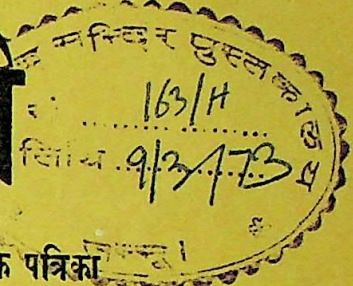 मन्दिर पुस्तकालय
सं. 163/H
तिथि 9/3/73
क पत्रिका